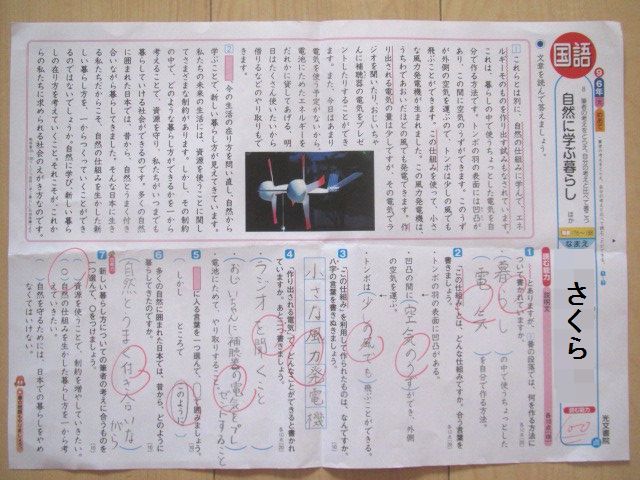 国語
6年
自然に学ぶ暮らし
ほか
なまえ
さくら
光文書院
● 文章を読んで答えましょう。
1 これらとは別に、自然の仕組みに学んで、エネ
ルギーそのものを作り出す試みもなされています。
これは、暮らしの中で使うちょっとした電気を自
分で作る方法です。トンボの羽の表面には凹凸が
あり、この間に空気のうずができます。このうず
が外側の空気を運ぶので、トンボは少しの風でも
飛ぶことができます。この仕組みを使って、小さ
な風力発電機が生まれました。この風力発電機は、
うちわであおいだほどの風でも発電できます。作
り出される電気の量は少しですが、その電気でラ
ジオを聞いたり、おじいちゃ
んに補聴器の電気をプレゼ
ントしたりすることができ
ます。また、今日はあまり
電気を使う予定がないから、
電池にためたエネルギーを
だれかに貸してあげる、明
日はたくさん使いたいから
借りるなどのやり取りもで
2 今の生活の在り方を問い直し、自然から
学ぶことで、新しい暮らし方が見えてきています。
私たちの未来の生活には、資源を使うことに関し
てさまざまな制約があります。しかし、その制約
の中で、どのような暮らし方ができるかを一から
考えることで、資源を守り、私たちがいつまでも
暮らしていける社会ができるのです。多くの自然
に囲まれた日本では、昔から、自然とうまく付き
合いながら暮らしてきました。そんな日本に生き
る私たちだからこそ、自然の仕組みを生かした新
しい暮らし方を、一からつくっていくことができ
るのではないでしょうか。自然に学び、新しい暮ら
しの在り方を考えていくこと。それこそが、これか
らの私たちに求められる社会のえがき方なのです。
1
ついて書かれていますか。
暮らし
の中で使うちょっとした
電気
を自分で作る方法。
2 「この仕組み」とは、どんな仕組みですか。合う言葉を
書きましょう。
・トンボの羽の表面に凹凸がある。
・凹凸の間に
空気のうず
ができ、外側
の空気を運ぶ。
・トンボは
少しの風でも
飛ぶことができる。
3 「この仕組み」を利用して作られたものは、なんですか。
八字の言葉を書きぬきましょう。
小さな風力発電機
4 「作り出される電気」で、どんなことができると書かれ
ていますか。あと二つ書きましょう。
ラジオを聞くこと
おじいちゃんに補聴器の電気をプレ
ゼントすること
電池にためて、やり取りすること。
5
に入る言葉を一つ選んで、
で囲みましょう。
しかし
ところで
このように
6 多くの自然に囲まれた日本では、昔から、どのように
暮らしてきたのですか。
自然とうまく付き合いな
がら
7 新しい暮らし方についての筆者の考えに合うものを
一つ選んで、○をつけましょう。
資源を使うことで、制約を増やしていきたい。
○
自然の仕組みを生かした暮らし方を一から考
えていきたい。
自然を守るためには、日本での暮らしをやめ
なくてはいけない。